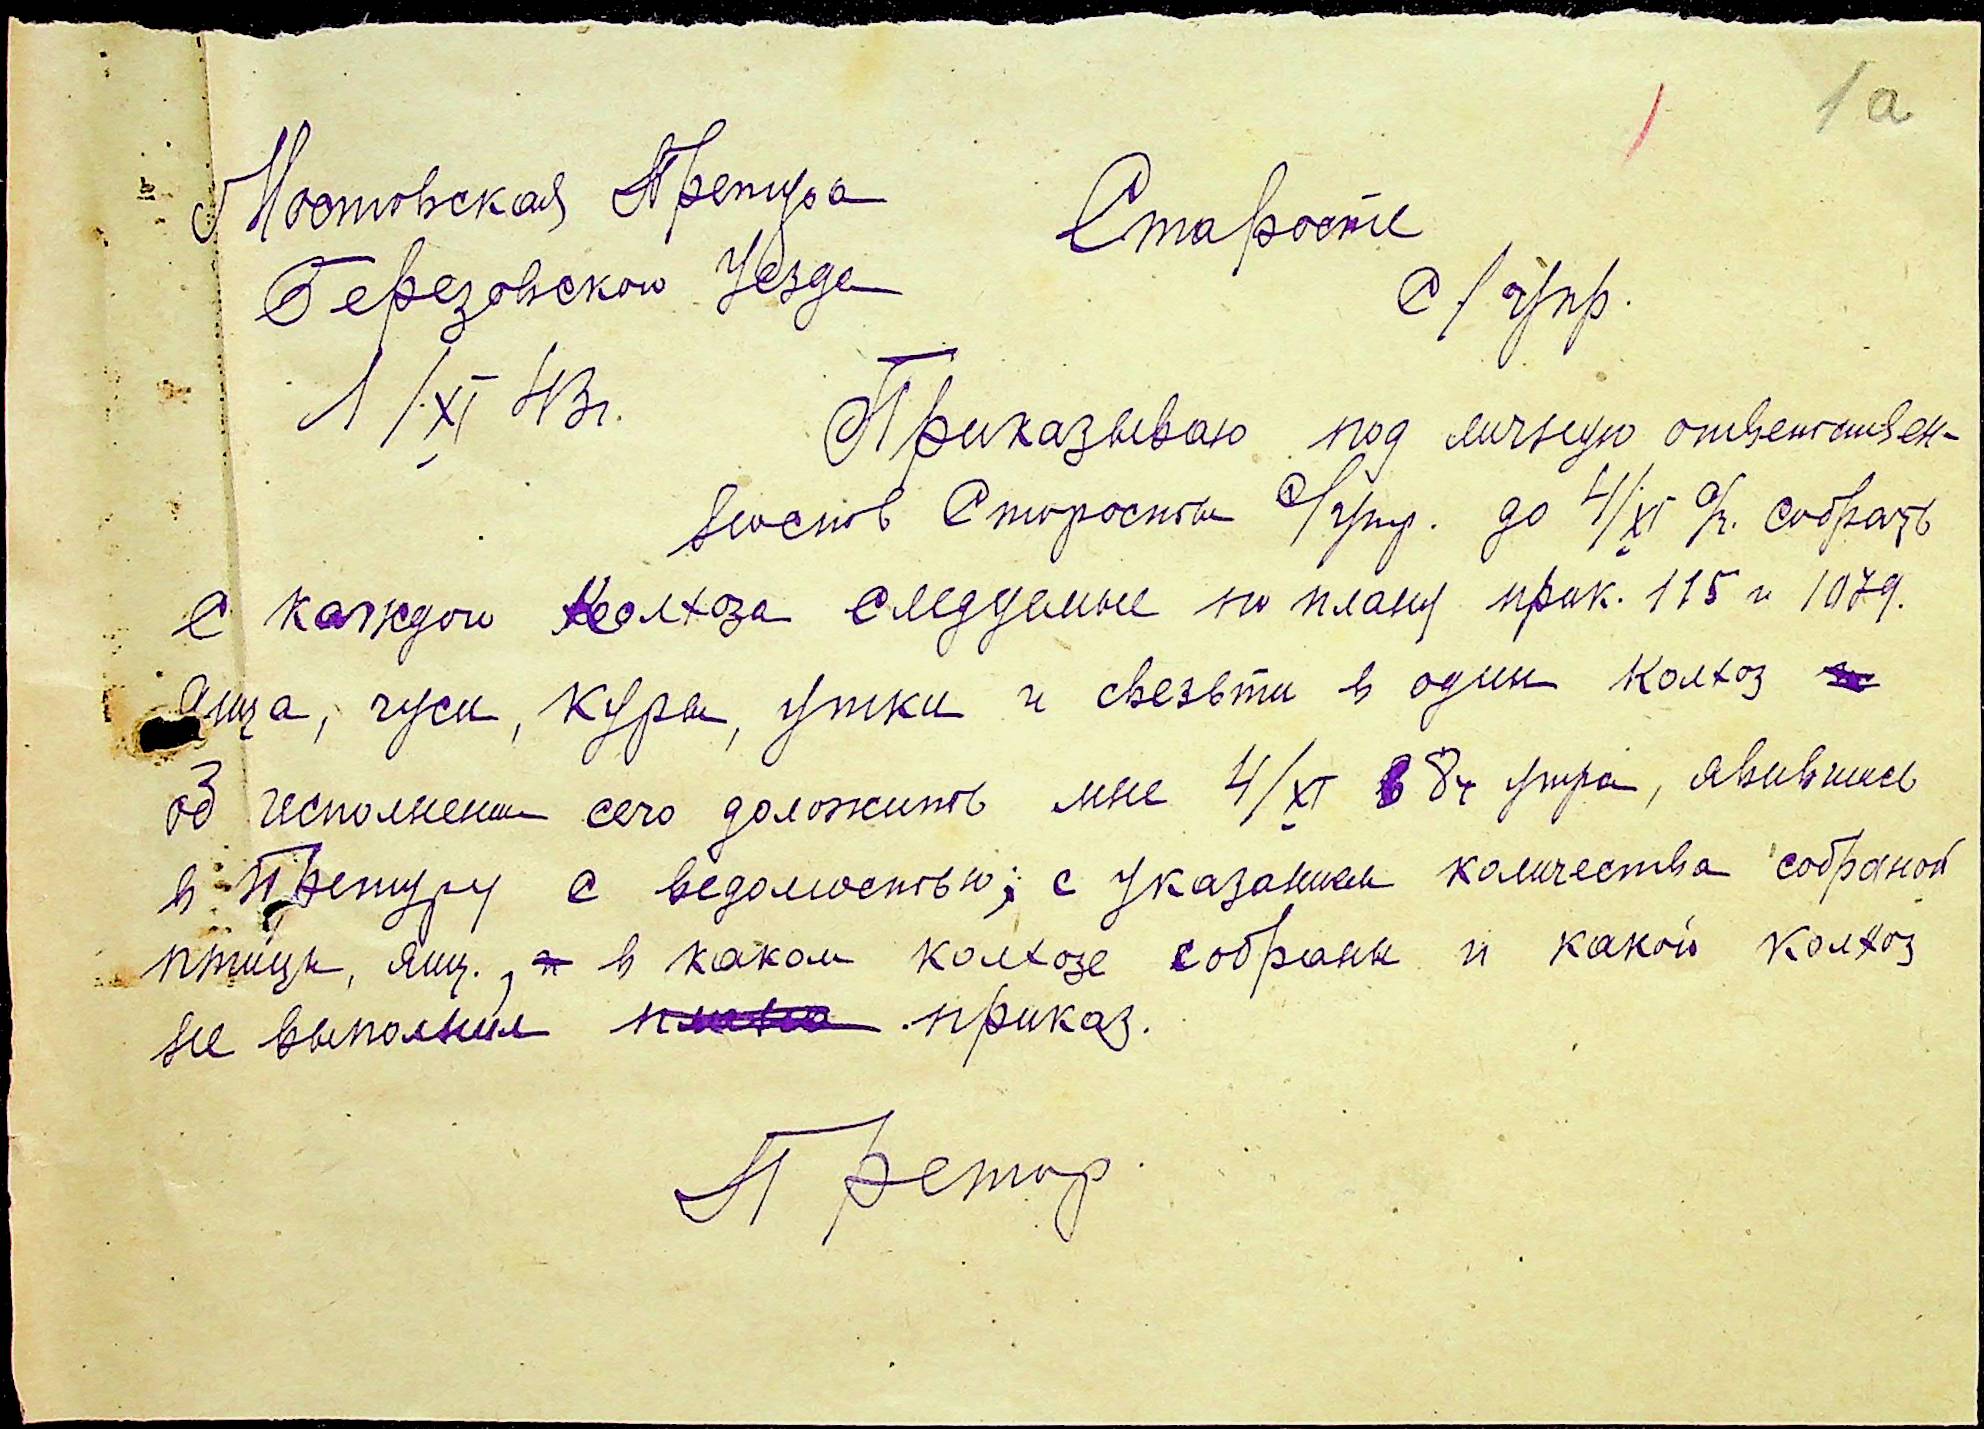 1а
Мостовская Претура
Березовского Уезда
1/XI 43 г.
Старосте
С/Упр.
Приказываю под личную ответствен-
ность Старосты С/Упр. до 4/XI с/г. собрать
с каждого колхоза следуемые по плану прик. 115 и 1079.
яица, гуси, куры, утки и свезьти в один колхоз
об исполнении сего доложить мне 4/XI в 8ч утра, явившись
в Претуру с ведомостью; с указанием количества собраной
птицы, яиц., в каком колхозе собраны и какой колхоз
не выполнил приказ.
Претор.